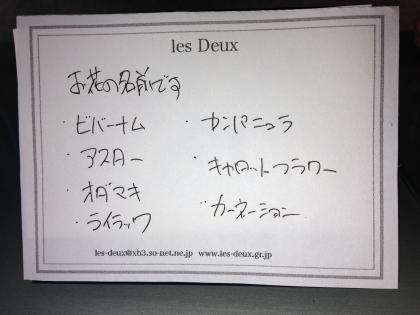 les Deux
お花の名前です
・ビバーナム
・アスター
・オダマキ
・ライラック
・カンパニュラ
・キャロットフラワー
・カーネーション
les-deux@xb3.so-net.ne.jp www.les-deux.gr.jp